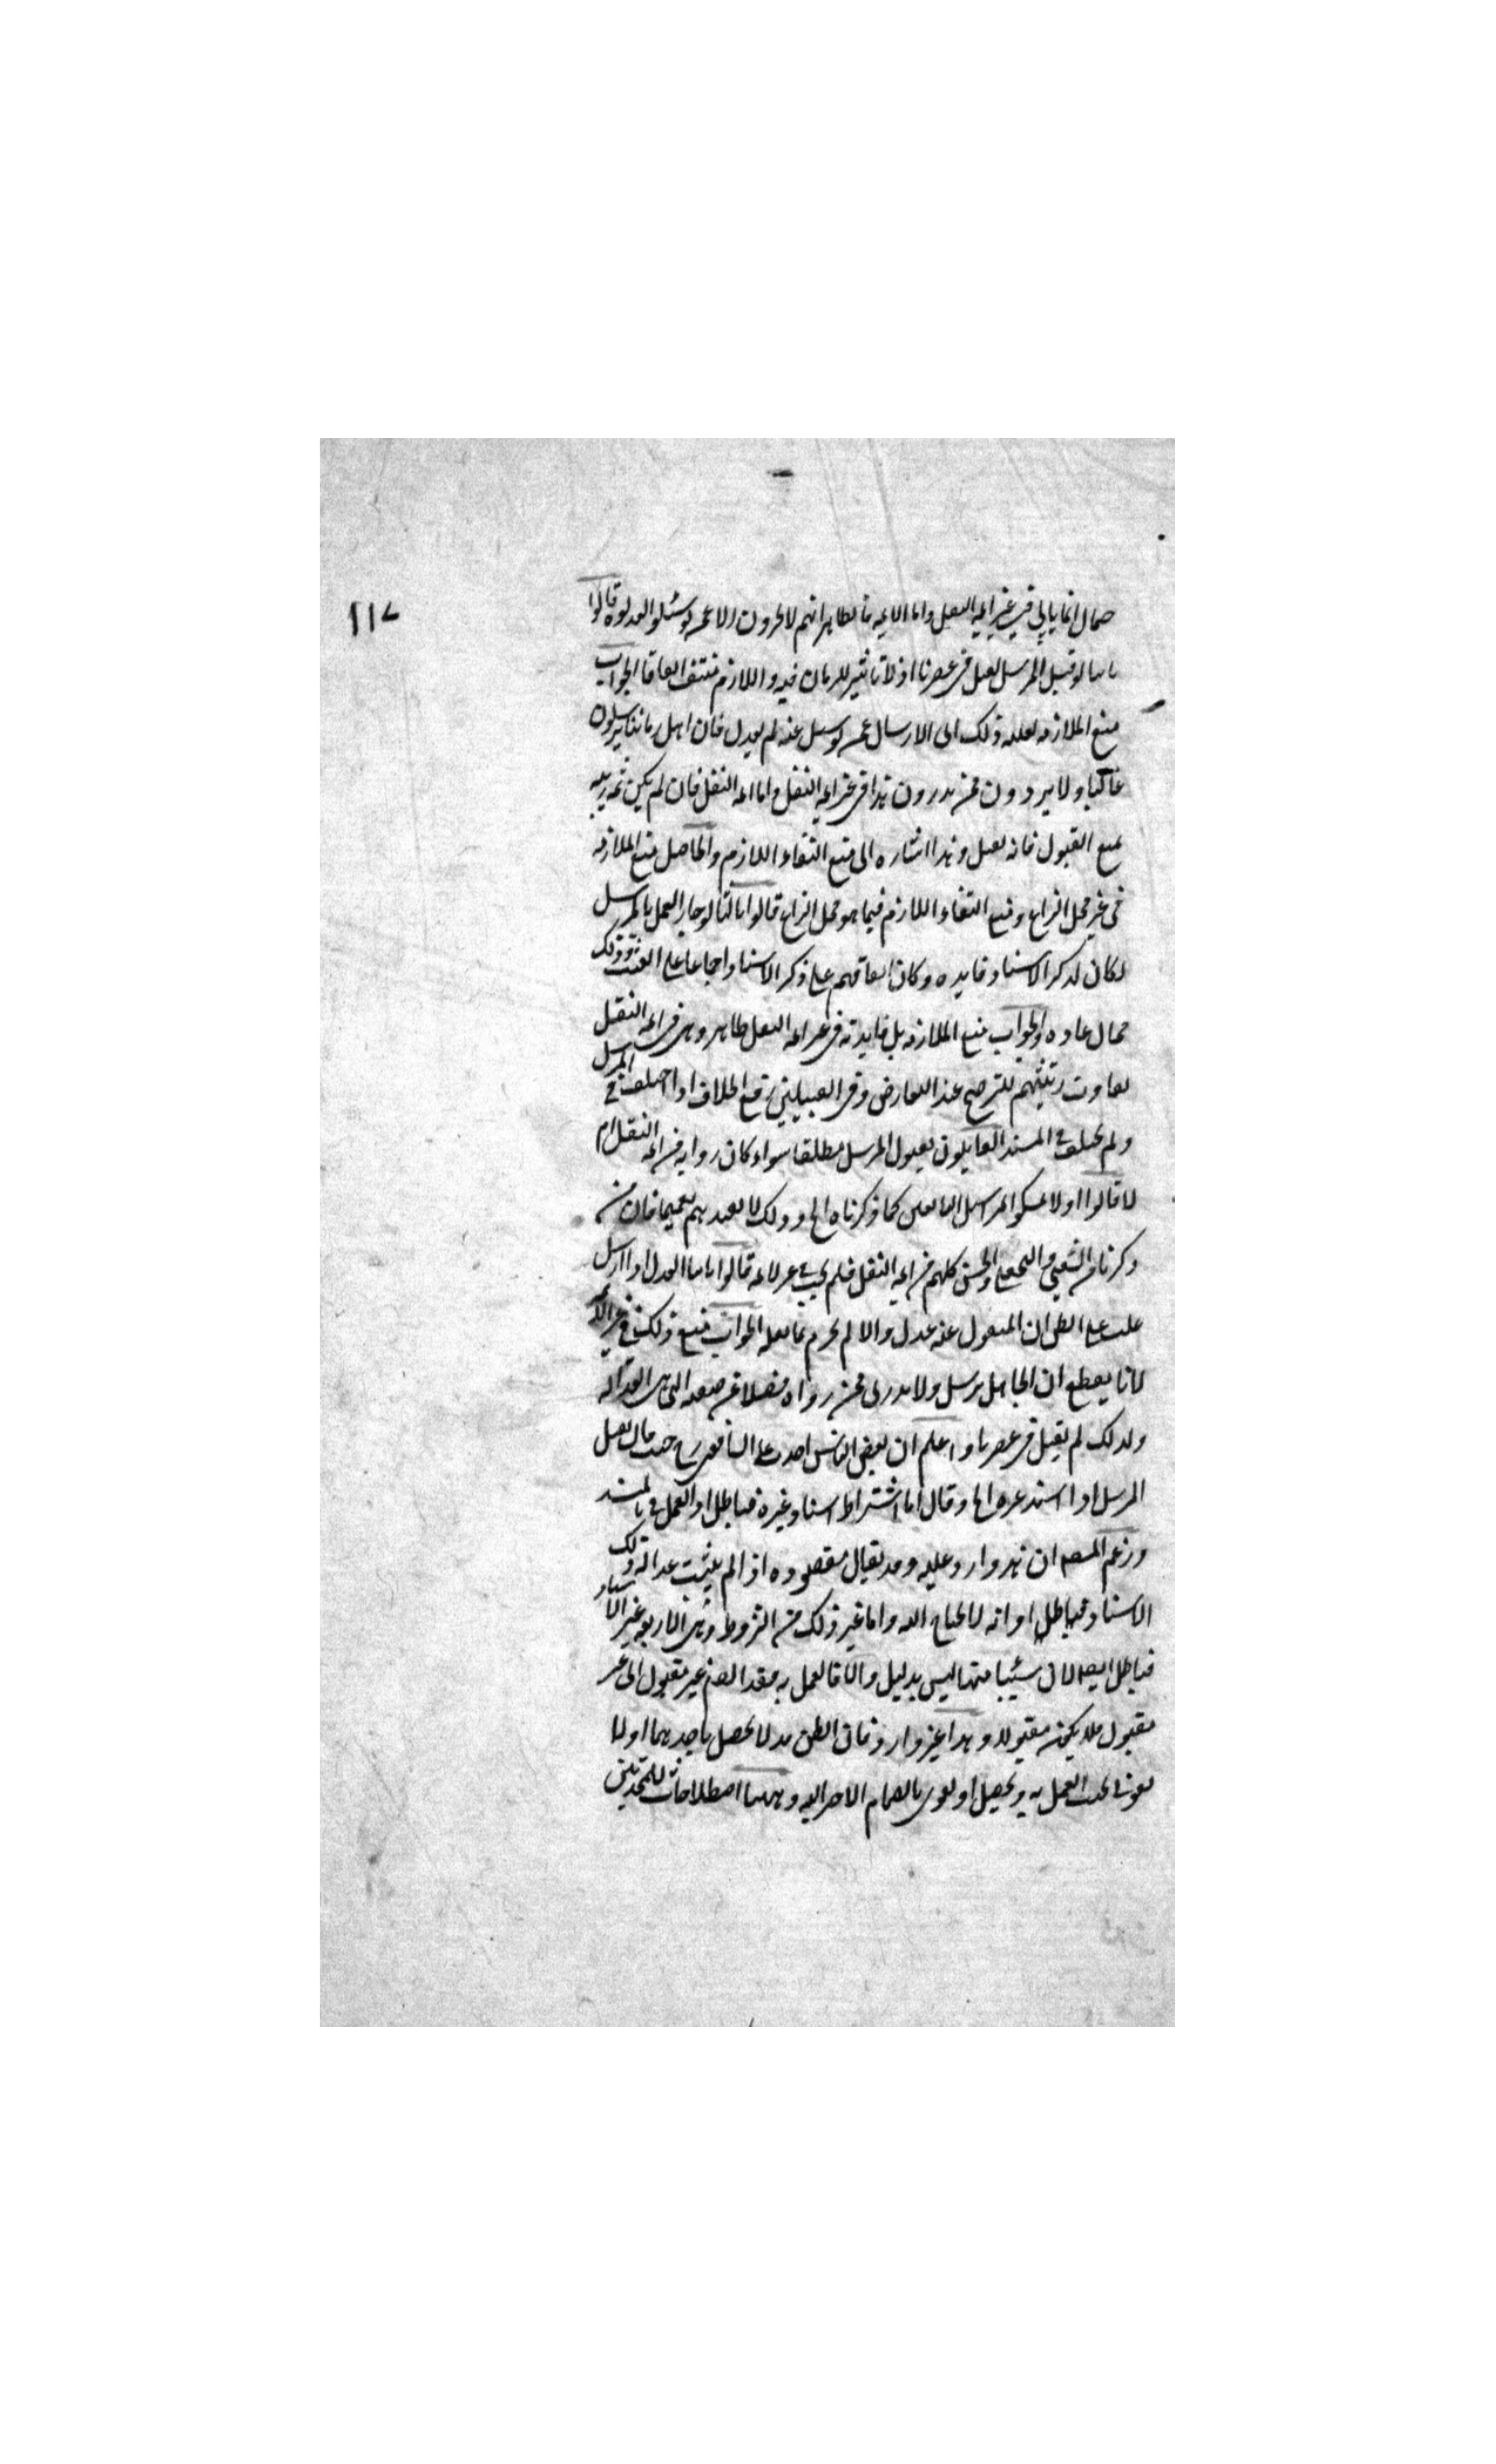 ١١٧
حمال انما ياتي في غير ايمه النقل واما الايمه فالظاهر انهم لا يجزمون الا عمن لو سئلوا لعدلوه قالوا
ثانيا لو قبل المرسل لقبل في عصرنا اذ لا تاثير للزمان فيه واللازم منتف اتفاقا الجواب
منع الملازمه لعليه ذلك اى الارسال عمن لو سئل عنه لم يعدل فان اهل زماننا يرسلون
غالبا ولا يردون عمن يدرون هذا في غير ايمه النقل واما ايمه النقل فان لم يكن ثمه ريبه
تمنع القبول فانه يقبل وهذا اشاره الى منع انتفاء اللازم والحاصل منع الملازمه
في غير محل النزاع ومنع انتفاء اللازم فيما هو محل النزاع قالوا ثالثا لو جاز العمل بالمرسل
لكان لذكر الاسناد فايده وكان اتفاقهم على ذكر الاسناد اجماعا على العبث وذلك
محال عاده والجواب منع الملازمه بل فايدته في غير ايمه النقل ظاهر وهي في ايمه النقل
تفاوت رتبتهم للترجيح عند التعارض وفي القبيلين رفع الخلاف اذا اختلف في المرسل
ولم يختلف في المسند القايلون بقبول المرسل مطلقا سواء كان رواية من ايمه النقل ام
لا قالوا اولا تمسكوا بمراسيل التابعين كما ذكرناه الخ وذلك لا يفيدهم تعميما فان من
ذكرنا من الشعبي والنخعي والحسن كلهم من ايمه النقل فلم يجب في غير الايمه قالوا ثانيا العدل اذا ارسل
غلب على الظن ان المنقول عنه عدل والا لم يجزم بما نقله الجواب منع ذلك في غير الا
لانا نقطع ان الجاهل يرسل ولا يدرى عمن رواه فضلا عن صفته التي هي العداله
ولذلك لم يقبل في عصرنا واعلم ان بعض الناس اخذ على الشافعي رح حيث قال يقبل
المرسل اذا اسند غيره الخ وقال اما اشتراط اسناد غيره فباطل اذ العمل في بالمسند
وزعم المصه ان هذا وارد عليه وقد يقال مقصوده اذا لم يثبت عداله ذلك
الاسناد فباطل اذ انه لا يحتاج اليه واما غير ذلك من الشروط وهي الاربعه غير الاسناد
فباطل ايضا لان شيئا منها ليس بدليل والا فالعمل به فقد انضم غير مقبول الى غير
مقبول فلا يكون مقبولا وهذا غير وارد فان الظن قد لا يحصل باحدهما اولا
يقوى بحيث العمل به ويحصل او يقوى بانضمام الاخر اليه وههنا اصطلاحات للمحدثين